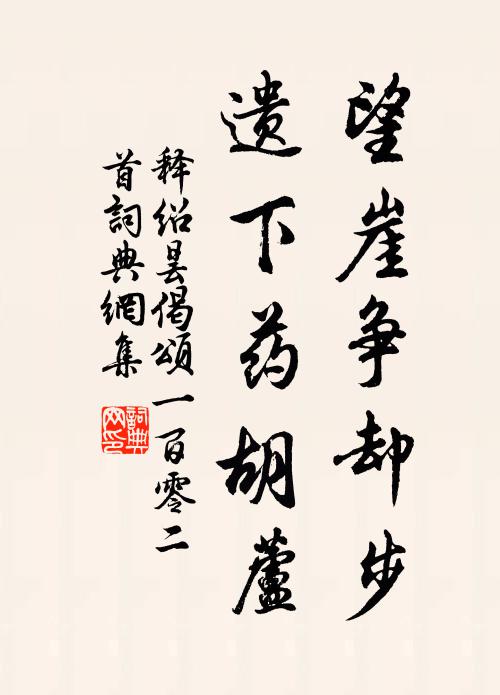 望崖争却步
遗下药胡蘆
释绍昙偈頌一百零二
首詞典網集
詞典网印